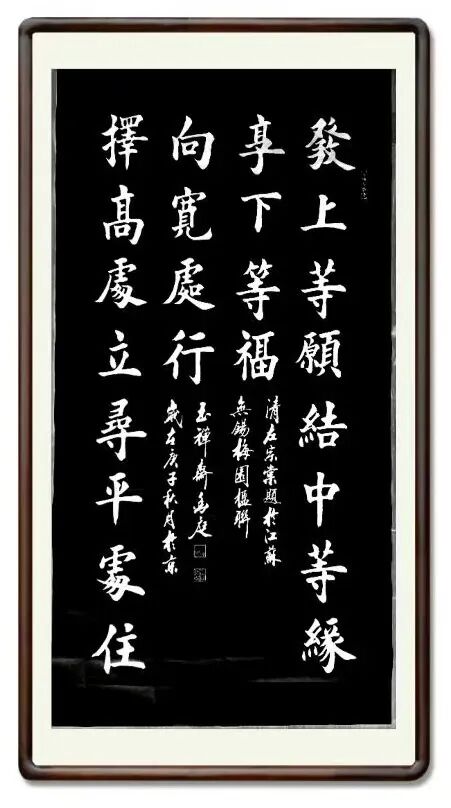 發上等願結中等緣
享下等福
清左宗棠題於江蘇
無錫梅園楹聯
擇高處立尋平處住
向寬處行
玉禪齋庭
歲在庚子秋月於京